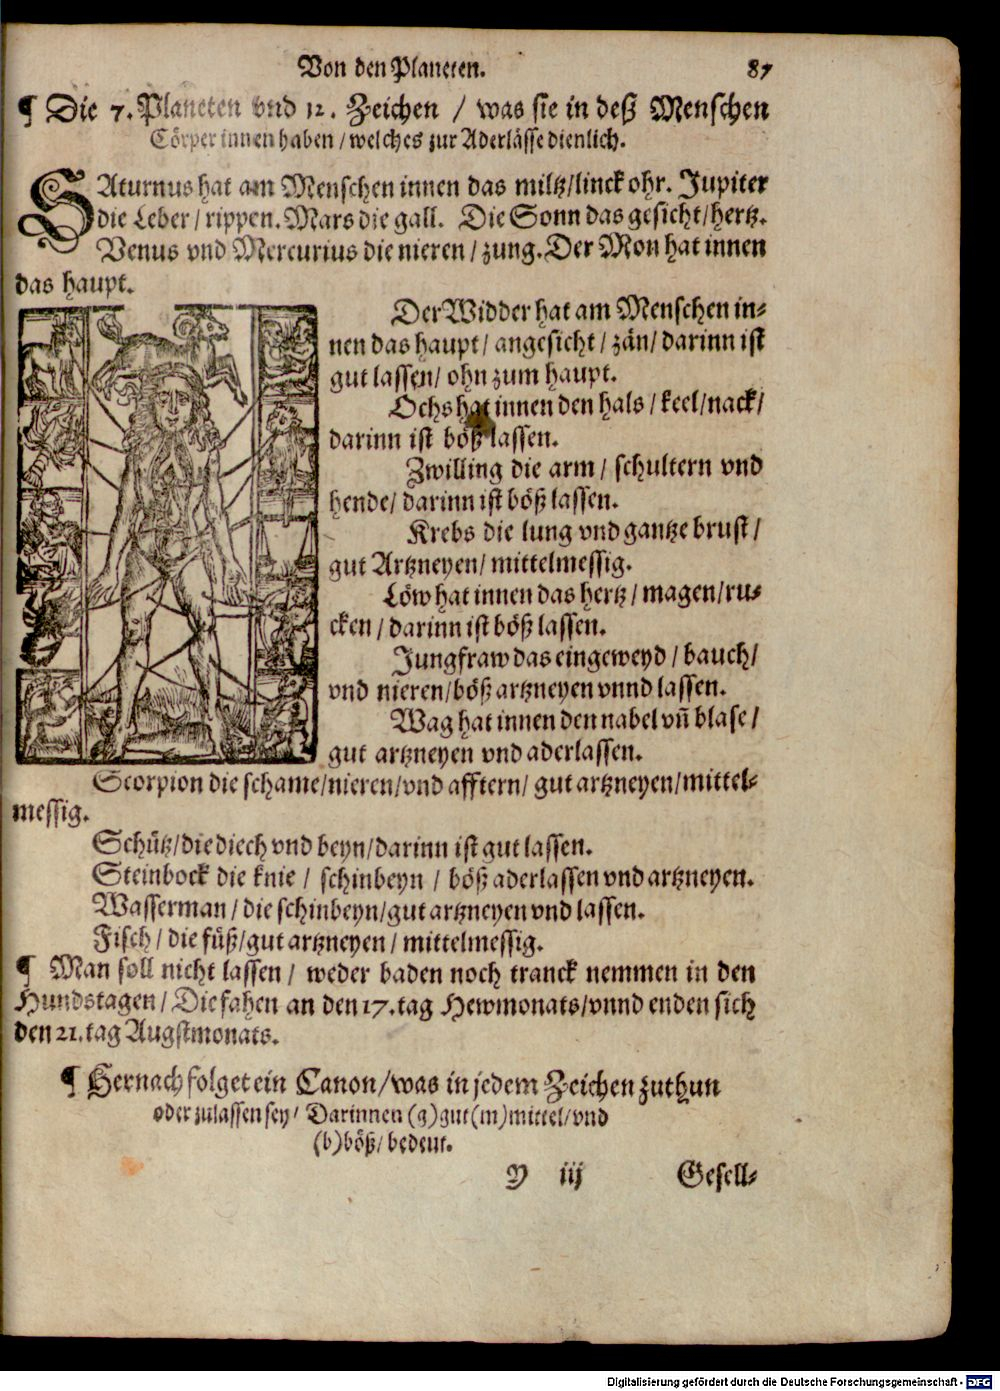 Von den Planeten. 87
¶ Die 7. Planeten vnd 12. Zeichen / was sie in deß Menschen
Cörper innen haben / welches zur Aderlässe dienlich.
SAturnus hat am Menschen innen das miltz/linck ohr. Jupiter
die Leber / rippen. Mars die gall. Die Sonn das gesicht/hertz.
Venus vnd Mercurius die nieren / zung. Der Mon hat innen
das haupt.
Der Widder hat am Menschen in⸗
nen das haupt/ angesicht / zän/ darinn ist
gut lassen/ ohn zum haupt.
Ochs hat innen den hals / keel/nack/
darinn ist böß lassen.
Zwilling die arm/ schultern vnd
hende/ darinn ist böß lassen.
Krebs die lung vnd gantze brust /
gut Artzneyen/ mittelmessig.
Löw hat innen das hertz / magen/ru⸗
cken / darinn ist böß lassen.
Jungfraw das eingeweyd / bauch/
vnd nieren/böß artzneyen vnnd lassen.
Wag hat innen den nabel vn̄ blase /
gut artzneyen vnd aderlassen.
Scorpion die schame/nieren/vnd afftern/ gut artzneyen/mittel⸗
messig.
Schütz/die diech vnd beyn/darinn ist gut lassen.
Steinbock die knie / schinbeyn / böß aderlassen vnd artzneyen.
Wasserman / die schinbeyn/gut artzneyen vnd lassen.
Fisch / die füß/gut artzneyen / mittelmessig.
¶ Man soll nicht lassen / weder baden noch tranck nemmen in den
Hundstagen / Die fahen an den 17. tag Hewmonats/vnnd enden sich
den 21. tag Augstmonats.
¶ Hernach folget ein Canon/was in jedem Zeichen zuthun
oder zulassen sey/ Darinnen (g) gut (m) mittel/ vnd
(b) böß/ bedeut.
Y iij Gesell⸗
Digitalisierung gefördert durch die Deutsche Forschungsgemeinschaft - DFG